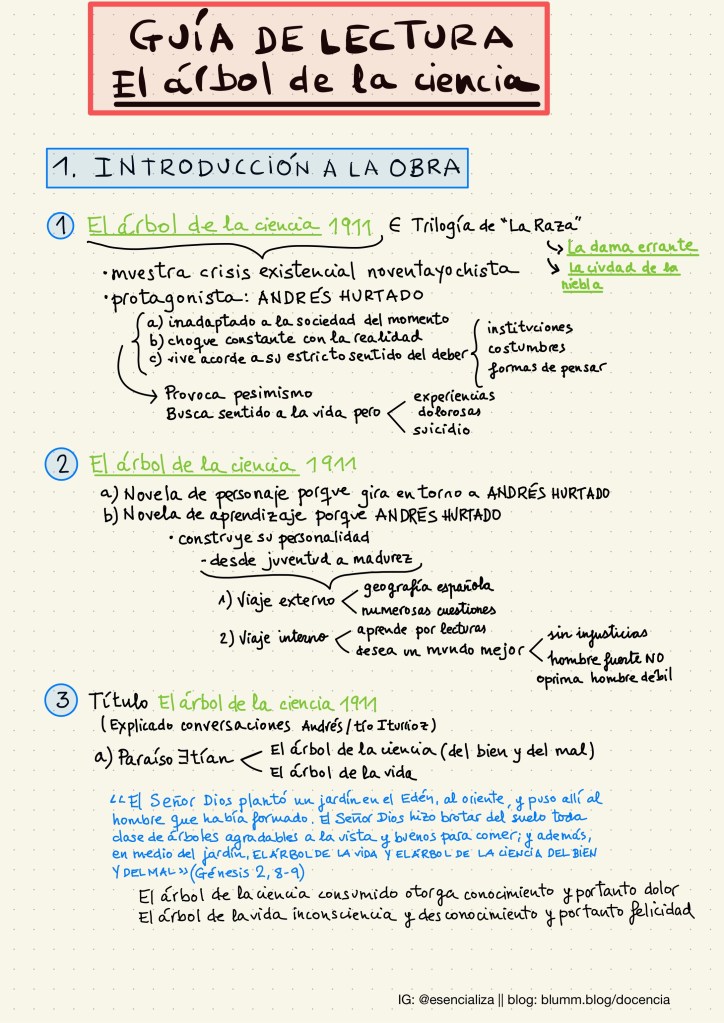 GUÍA DE LECTURA
El árbol de la ciencia
1. INTRODUCCIÓN A LA OBRA
1 El árbol de la ciencia 1911, ∈ Trilogía de "La Raza"
↳ La dama errante
↳ La ciudad de la
niebla
• muestra crisis existencial noventayochista
• protagonista: ANDRÉS HURTADO
a) inadaptado a la sociedad del momento
b) choque constante con la realidad
c) vive acorde a su estricto sentido del deber
instituciones
costumbres
formas de pensar
→ Provoca pesimismo
Busca sentido a la vida pero
experiencias
dolorosas
suicidio
2 El árbol de la ciencia 1911
a) Novela de personaje porque gira en torno a ANDRÉS HURTADO
b) Novela de aprendizaje porque ANDRÉS HURTADO
• construye su personalidad
- desde juventud a madurez
1) Viaje externo < geografía española
numerosas cuestiones
2) Viaje interno < aprende por lecturas
desea un mundo mejor <
sin injusticias
hombre fuerte NO
oprima hombre débil
3 Título El árbol de la ciencia 1911
(Explicado conversaciones Andrés/tío Iturrioz)
a) Paraíso ∃tían < El árbol de la ciencia (del bien y del mal)
El árbol de la vida
<<El Señor Dios plantó un jardín en el Edén, al oriente, y puso allí al
hombre que había formado. El Señor Dios hizo brotar del suelo toda
clase de árboles agradables a la vista y buenos para comer; y además,
en medio del jardín, EL ÁRBOL DE LA VIDA Y EL ÁRBOL DE LA CIENCIA DEL BIEN
Y DEL MAL>> (Génesis 2, 8-9)
El árbol de la ciencia consumido otorga conocimiento y por tanto dolor
El árbol de la vida inconsciencia y desconocimiento y por tanto felicidad
IG: @esencializa || blog: blumm.blog/docencia